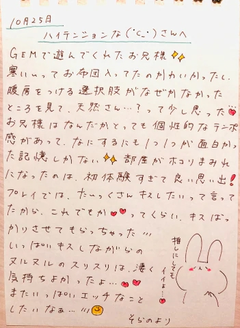 10月25日
ハイテンションな('c_,')さんへ
GEMで選んでくれたお兄様✨✨
寒いってお布団入ってたのかわいかったし、
暖房をつける選択肢がなぜかなかった
ところを見て、天然さん…?って少し思った
お兄様はなんだかとっても個性的なテンポ
感があって、なにするにも1つ1つが面白かっ
た記憶しかない✨部屋がホコリまみれ
になったのは、初体験すぎて良い思い出!
プレイでは、たぁっくさんキスしたいって言って
たから、これでもか❤❤ってくらい、キスばっ
かりさせてもらっちゃった!!!
いっぱいキスしながらの
ヌルヌルのスリスリは、凄く
気持ちよかったよ…❤❤
またいっぱいエッチなこと
したいなぁ…!!!
そらのより
推しにとても
イイよー♥